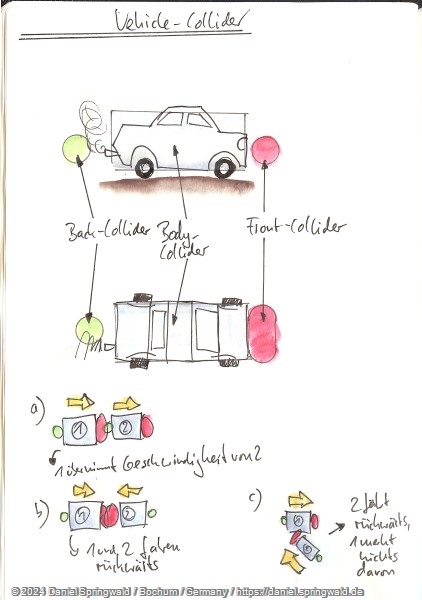 Vehicle-Collider
Back-Collider
Body-
Collider
Front-Collider
a)
1
2
1 übernimmt Geschwindigkeit von 2
b)
1
2
1 und 2 fahren
rückwärts
c)
1
2
2 fährt
rückwärts,
1 merkt
nichts
davon
© 2024 Daniel Springwald / Bochum / Germany / https://daniel.springwald.de